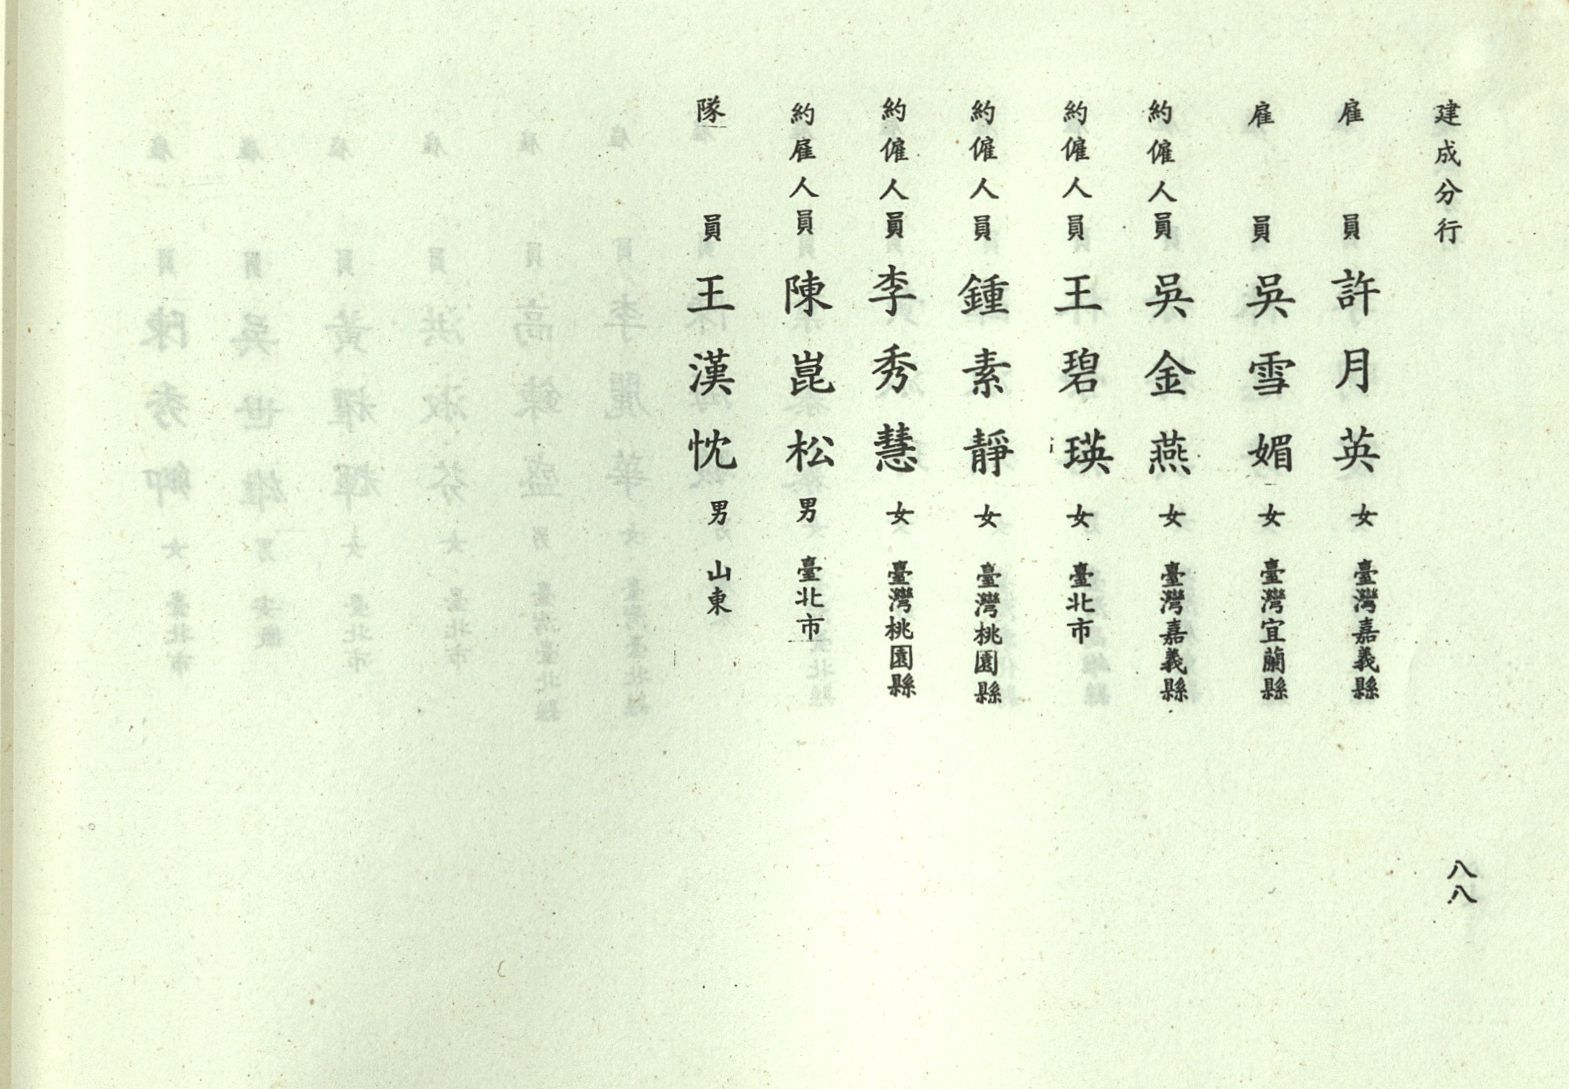 建成分行
雇員 許月英 女 臺灣嘉義縣
雇員 吳雪媚 女 臺灣宜蘭縣
約僱人員 吳金燕 女 臺灣嘉義縣
約僱人員 王碧瑛 女 臺北市
約僱人員 鍾素靜 女 臺灣桃園縣
約僱人員 李秀慧 女 臺灣桃園縣
約雇人員 陳崑松 男 臺北市
隊員 王漢忱 男 山東
八八